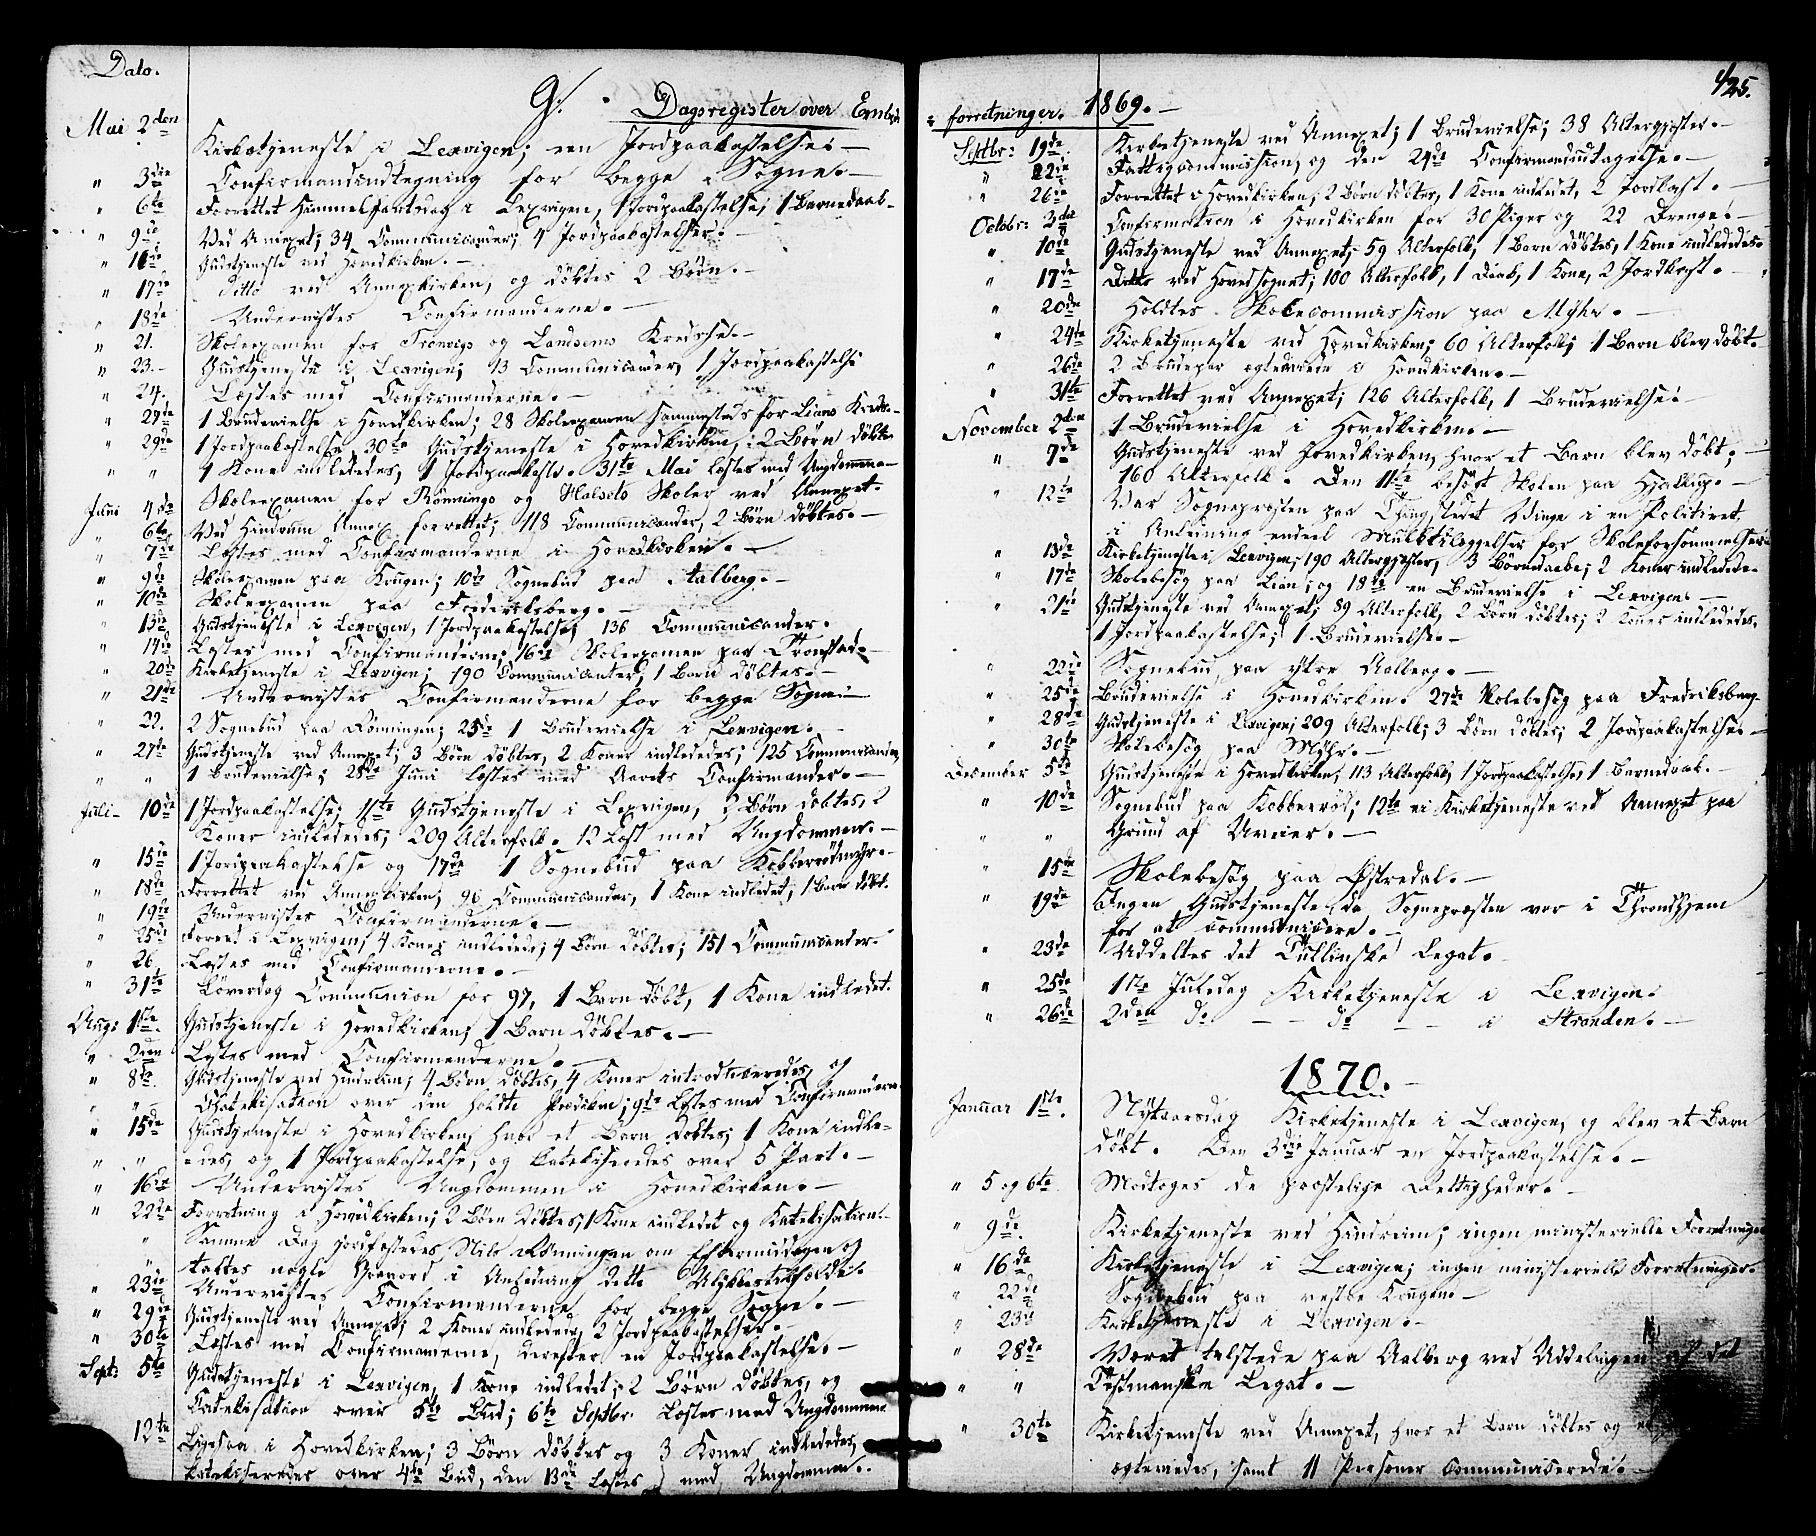 Dato.
G. Dagsregister over Embeds-
Mai 2den Kirketjeneste i Lexvigen; een Jordpaakastelse. —
" 3die Confirmandindtegning for begge Sogne. —
" 6te Forrettet Himmelfartsdag i Lexvigen, 1 Jordpaakastelse; 1 Barnedaab. —
" 9de Ved Annexet; 34 Communicander; 4 Jordpaakastelser. —
" 16de Gudstjeneste ved Hovedkirken. —
" 17de ditto ved Annexkirken, og döbtes 2 Börn. —
" 18de Undervistes Confirmanderne. —
" 21. Skoleexamen for Trönvigs og Landsems Kredse. —
" 23. Gudstjeneste i Lexvigen; 93 Communicander, 1 Jordpaakastelse
" 24. Læstes med Confirmanderne. —
" 29de 1 Brudevielse i Hovedkirken; 28 Skoleexamen sammesteds for Liens Kreds. —
" 29de 1 Jordpaakastelse, 30te Gudstjeneste i Hovedkirken; 2 Börn döbte
" " 1 Kone indlededes, 1 Jordpaakast. 31te Mai læstes med Ungdommen —
Juni 4de Skoleexamen for Rönnings og Halsets Skoler ved Annexet.
" 6te Ved Hindrum Annex forrettet; 118 Communicander, 2 Börn döbtes. —
" 7de Læstes med Confirmanderne i Hovedkirken. —
" 9de Skoleexamen paa Kougen; 10de Sognebud paa Aalberg. —
" 10de Skoleexamen paa Frederiksberg. —
" 13de Gudstjeneste i Lexvigen, 1 Jordpaakastelse; 136 Communicander.
" 14de Læstes med Confirmanderne; 16de Skoleexamen paa Grönstad. —
" 20de Kirketjeneste i Lexvigen; 190 Communicanter; 1 Barn döbtes. —
" 21de Undervistes Confirmanderne for begge Sogne. —
" 22. 2 Sognebud paa Rönningen; 25de 1 Brudevielse i Lexvigen. —
" 27de Gudstjeneste ved Annexet; 3 Börn döbtes, 2 Koner indlededes; 125 Communicander,
" " 1 Brudevielse; 28de Juni læstes med Aarets Confirmander. —
Juli 10de 1 Jordpaakastelse; 11te Gudstjeneste i Lexvigen, 2 Börn döbtes, 2
Koner indlededes; 209 Alterfolk. 12 Læst med Ungdommen. —
" 15de 1 Jordpaakastelse og 17de 1 Sognebud paa Kobberrödmyr. —
" 18de Forrettet ved Annexkirken; 96 Communicander, 1 Kone indledet; 1 Barn döbt.
" 19de Undervistes Confirmanderne. —
" 25de Forrett i Lexvigen; 4 Koner indledede; 4 Börn döbtes; 151 Communicander.
" 26 Læstes med Confirmanderne. —
" 31te Löverdag Communion for 97, 1 Barn döbt, 1 Kone indledet.
Aug: 1ste Gudstjeneste i Hovedkirken; 1 Barn döbtes. —
" 2den Læstes med Confirmanderne. —
" 8de Gudstjeneste ved Hindrem; 4 Börn döbtes, 4 Koner introduceredes, og
" " Chatekisation over den holdte Prædiken; 9de læstes med Confirmanderne
" 15de Gudstjeneste i Hovedkirken; hvor et Barn döbtes; 1 Kone indle-
" " =des, og 1 Jordpaakastelse, og katekiseredes over 5 Part. —
" 16de Undervistes Ungdommen i Hovedkirken. —
" 22de Forretning i Hovedkirken; 2 Börn döbtes; 1 Kone indledet og Katekisation. —
" Samme Dag jordfæstedes Nils Rönningen om Eftermiddagen og
taltes nogle Gravord i Anledning dette Ulykkestilfælde.
" 23de Undervistes Confirmanderne for begge Sogne. —
" 29de Gudstjeneste ved Annexet; 2 Koner indledede, 2 Jordpaakastelser. —
" 30te Læstes med Confirmanderne, derefter en Jordpaakastelse. —
Sept: 5te Gudstjeneste i Lexvigen, 1 Kone indledet; 2 Börn döbtes, og
Catekisation over 5te Bud; 6te Septbr. læstes med Ungdommen
12te Ligesaa i Hovedkirken; 3 Börn döbtes og 3 Koner indlededes,
katekiseredes over 4de Bud, den 13de læstes med Ungdommen. —
425.
= forretninger. 1869. —
Septbr: 19de Kirketjeneste ved Annexet; 1 Brudevielse; 38 Altergjæster. —
" 22de Fattigcommission, og den 24de Confirmandudtagelse. —
" 26de Forrettet i Hovedkirken; 2 Börn döbtes, 1 Kone indledet, 2 Jordkast. —
Octobr: 3die Confirmation i Hovedkirken for 30 Piger og 22 Drenge. —
" 10de Gudstjeneste ved Annexet; 59 Alterfolk, 1 Barn döbtes, 1 Kone indlededes.
" 17de Ditto ved Hovedsognet; 100 Alterfolk, 1 Daab, 1 Kone, 2 Jordkast. —
" 20de Holdtes Skolecommission paa Myhr. —
" 24de Kirketjeneste ved Hovedkirken; 60 Alterfolk; 1 Barn blev döbt.
" 26de 2 Brudepar ægteviede i Hovedkirken. —
" 31te Forrettet ved Annexet; 126 Alterfolk, 1 Brudevielse.
November 2den 1 Brudevielse i Hovedkirken. —
" 7de Gudstjeneste ved Hovedkirken, hvor et Barn blev döbt; —
160 Alterfolk. Den 11te besögt Skolen paa Hjellup. —
" 12te Var Sognepræsten paa Thingstedet Vinge i en Politiret
i Anledning endeel Mulktilæggelser for Skoleforsömmelser
" 13de Kirketjeneste i Lexvigen; 190 Altergjæster, 3 Börnedaabe; 2 Koner indledede.
" 17de Skolebesög paa Lien; og 18de en Brudevielse i Lexvigen. —
" 21de Gudstjeneste ved Annexet; 89 Alterfolk, 2 Börn döbtes; 2 Koner indlededes,
1 Jordpaakastelse; 1 Brudevielse. —
" 22de Sognebud paa ytre Aalberg. —
" 25de Brudevielse i Hovedkirken. 27de Skolebesög paa Fredriksberg.
" 28de Gudstjeneste i Lexvigen; 209 Alterfolk; 3 Börn döbtes; 2 Jordpaakastelser. —
" 30te Skolebesög paa Myhr. —
December 5te Gudstjeneste i Hovedkirken, 113 Alterfolk, 1 Jordpaakastelse, 1 Barnedaab. —
" 10de Sognebud paa Kobberröd; 12te ei Kirketjeneste ved Annexet paa
" " Grund af Uveier. —
" 15de Skolebesög paa Östredal. —
" 19de Ingen Gudstjeneste, da Sognepræsten var i Throndhjem
for at communicere. —
" 23de Uddeltes det Tullinske Legat. —
" 25de 1ste Juledag Kirketjeneste i Lexvigen.
" 26de 2den do — do — i Stranden. —
1870. —
Januar 1ste. Nytaarsdag Kirketjeneste i Lexvigen, og blev et Barn
döbt. Den 3die Januar en Jordpaakastelse. —
" 5 og 6te Modtoges de præstelige Rettigheder. —
" 9de. Kirketjeneste ved Hindrem; ingen ministerielle Forretninger
" 16de Kirketjeneste i Lexvigen; ingen ministerielle Forretninger. —
" 22de Sognebud paa vestre Kougen. —
" 23de Kirketjeneste i Lexvigen. —
" 28de Været tilstede paa Aalberg ved Uddelingen af det
" " Testmanske Legat. —
" 30te Kirketjeneste ved Annexet, hvor et Barn döbtes og et
ægteviedes, samt 11 Personer communicerede. —